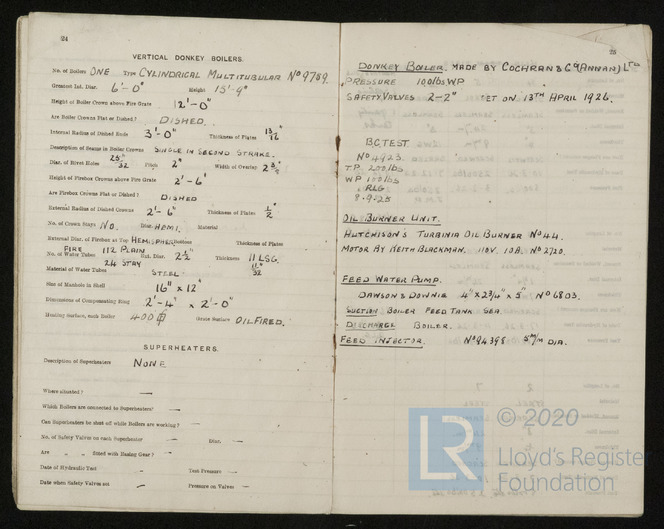 24
VERTICAL DONKEY BOILERS.
No. of Boilers ONE Type CYLINDRICAL MULTITUBULAR No 9789.
Greatest Int. Diar. 6'-0" Height 13'-9"
Height of Boiler Crown above Fire Grate 12'-0"
Are Boiler Crowns Flat or Dished? DISHED.
Internal Radius of Dished Ends 3'-0" Thickness of Plates 13/16"
Description of Seams in Boiler Crowns SINGLE IN SECOND STRAKE.
Diar. of Rivet Holes 25/32" Pitch 2" Width of Overlap
Height of Firebox Crowns above Fire Grate 2'-6"
Are Firebox Crowns Flat or Dished? DISHED
External Radius of Dished Crowns 2'-6" Thickness of Plates 1/2"
No. of Crown Stays NO. Diar. HEMI. Material
External Diar. of Firebox at Top HEMISPHERE Bottom Thickness of Plates
FIRE 112 PLAIN
No. of Water Tubes 24 STAY Ext. Diar. 2½" Thickness 11 LSG. 11/32"
Material of Water Tubes STEEL
Size of Manhole in Shell 16" x 12"
Dimensions of Compensating Ring 2'-4" x 2'-0"
Heating Surface, each Boiler 400 Grate Surface OIL FIRED.
SUPERHEATERS.
Description of Superheaters NONE
Where situated? —
Which Boilers are connected to Superheaters? —
Can Superheaters be shut off while Boilers are working? —
No. of Safety Valves on each Superheater — Diar. —
Are „ „ fitted with Easing Gear? —
Date of Hydraulic Test — Test Pressure —
Date when Safety Valves set — Pressure on Valves —
25
DONKEY BOILER. MADE BY COCHRAN & Co (ANNAN) LTD
PRESSURE 100 lbs WP
SAFETY VALVES 2-2" SET ON 13TH APRIL 1926.
BC TEST
No 4923.
TP 200 lbs
WP 100 lbs
RLG
9.9.25
OIL BURNER UNIT.
HUTCHISON'S TURBINIA OIL BURNER No 44.
MOTOR BY KEITH BLACKMAN. 110V. 10A. No 2720.
FEED WATER PUMP.
DAWSON & DOWNIE 4" x 2¾" x 5" No 6803.
SUCTION BOILER FEED TANK SEA.
DISCHARGE BOILER.
FEED INJECTOR. No 94398 5 M/M DIA.
LR
© 2020
Lloyd's Register
Foundation